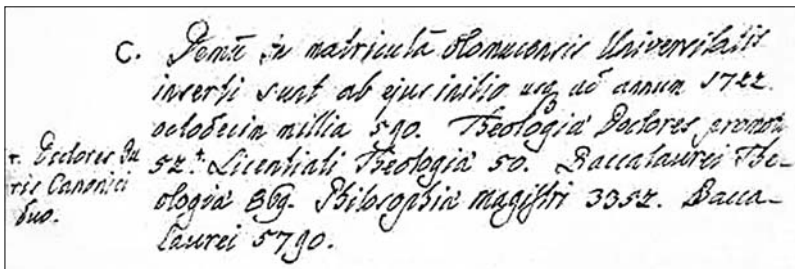 C. Demũ in matriculã Olomucensis Universitatis
inserti sunt ab ejus initio usq ad annum 1722.
octodecim millia 590. Theologiæ Doctores promoti
52.+ Licentiati Theologiæ 50. Baccalaurei The-
ologiæ 869. Philosophiæ Magistri 3352. Bacca-
laurei 5790.
+. Doctores Ju
ris Canonici
duo.